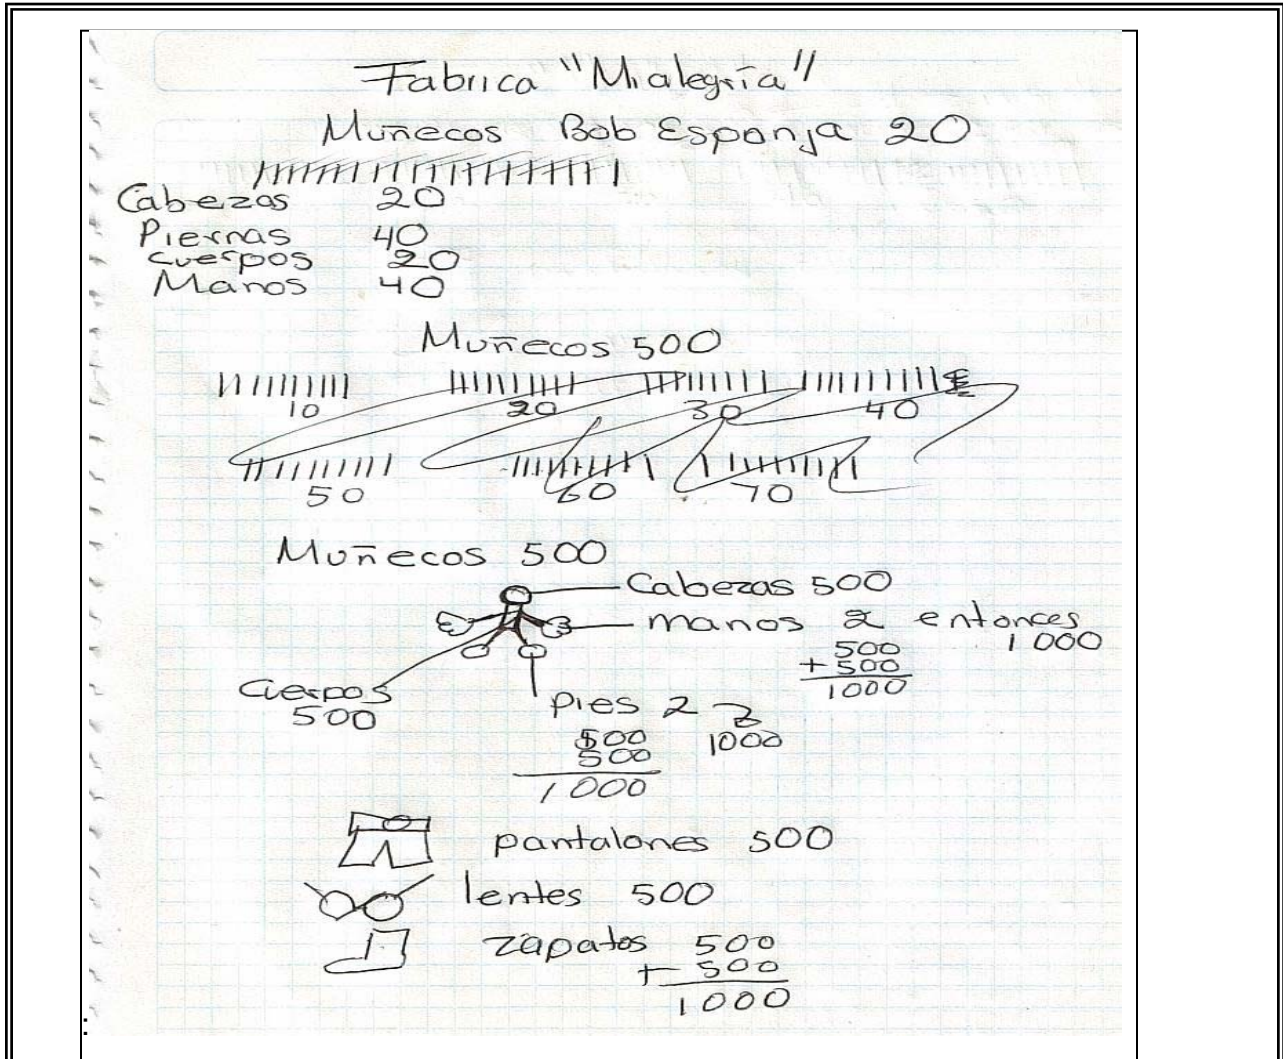 Fabrica "Mialegría"
Muñecos Bob Esponja 20
Cabezas 20
Piernas 40
cuerpos 20
Manos 40
Muñecos 500
10 20 30 40
50 60 70
Muñecos 500
Cabezas 500
manos 2 entonces
500 1000
+ 500
1000
Cuerpos
500
Pies 2
500 1000
500
1000
pantalones 500
lentes 500
zapatos 500
+ 500
1000
: